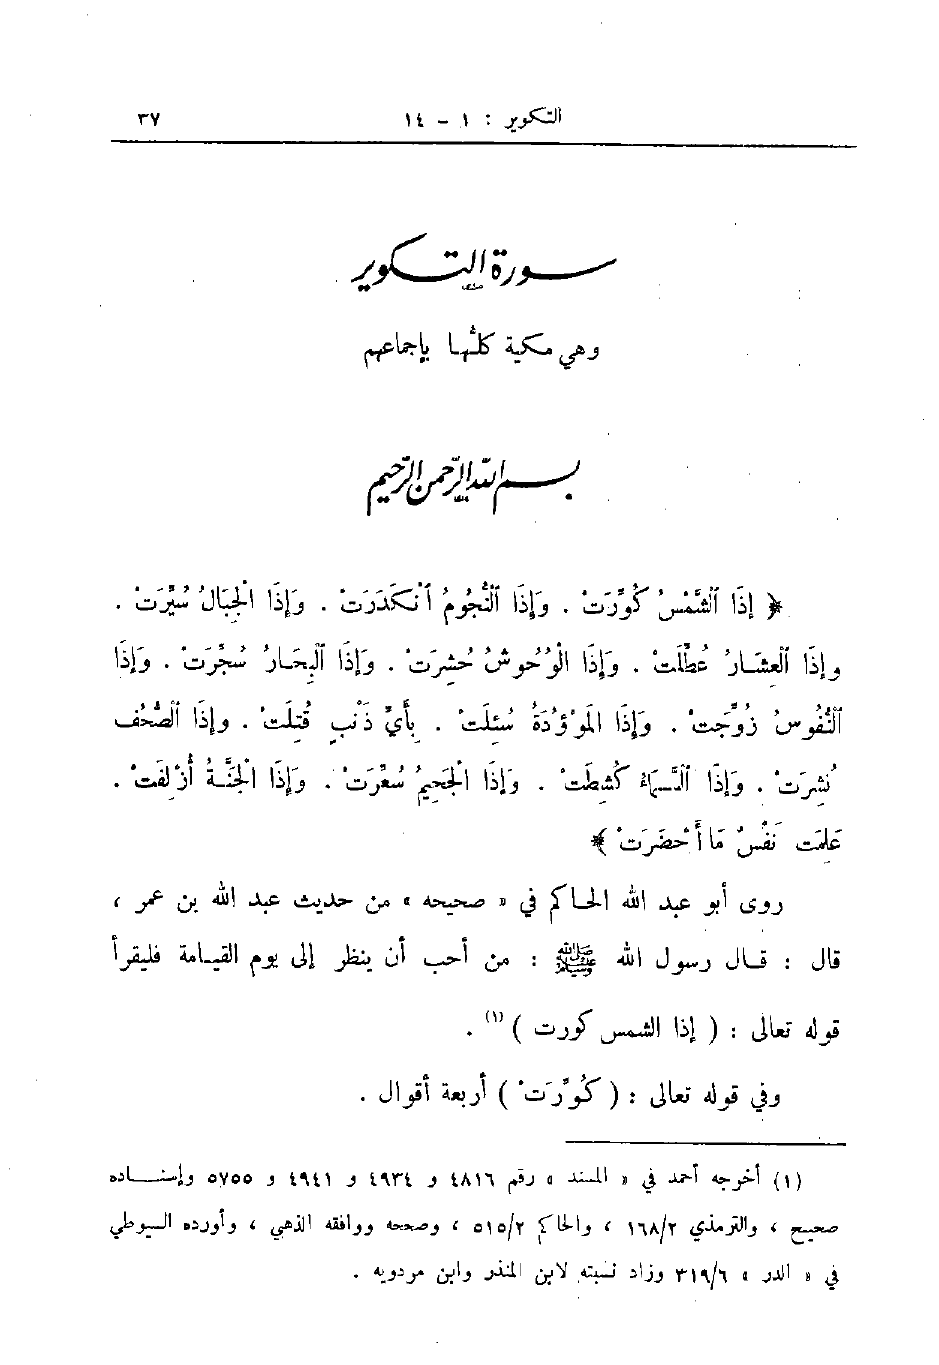 التكوير : ١ - ١٤ ٣٧
سورة التكوير
وهي مكية كلُّها بإجماعهم
بسم الله الرحمن الرحيم
﴿ إِذَا ٱلشَّمْسُ كُوِّرَتْ . وَإِذَا ٱلنُّجُومُ ٱنْكَدَرَتْ . وَإِذَا الْجِبَالُ سُيِّرَتْ .
وإِذَا الْعِشَارُ عُطِّلَتْ . وَإِذَا الْوُحُوشُ حُشِرَتْ . وَإِذَا الْبِحَارُ سُجِّرَتْ . وَإِذَا
ٱلنُّفُوسُ زُوِّجَتْ . وَإِذَا المَوْؤُدَةُ سُئِلَتْ . بِأَيِّ ذَنْبٍ قُتِلَتْ . وإِذَا الصُّحُف
نُشِرَتْ . وَإِذَا السَّمَاءُ كُشِطَتْ . وَإِذَا الْجَحِيمُ سُعِّرَتْ . وَإِذَا الْجَنَّةُ أُزْلِفَتْ .
عَلِمَت نَفْسٌ مَا أَحْضَرَتْ ﴾
روى أبو عبد الله الحاكم في « صحيحه » من حديث عبد الله بن عمر ،
قال : قال رسول الله ﷺ : من أحب أن ينظر إلى يوم القيامة فليقرأ
قوله تعالى : ( إذا الشمس كورت ) (١) .
وفي قوله تعالى : ( كُوِّرَتْ ) أربعة أقوال .
(١) أخرجه أحمد في « المسند » رقم ٤٨١٦ و ٤٩٣٤ و ٤٩٤١ و ٥٧٥٥ وإسناده
صحيح ، والترمذي ١٦٨/٢ ، والحاكم ٥١٥/٢ ، وصححه ووافقه الذهبي ، وأورده السيوطي
في « الدر » ٣١٩/٦ وزاد نسبته لابن المنذر وابن مردويه .